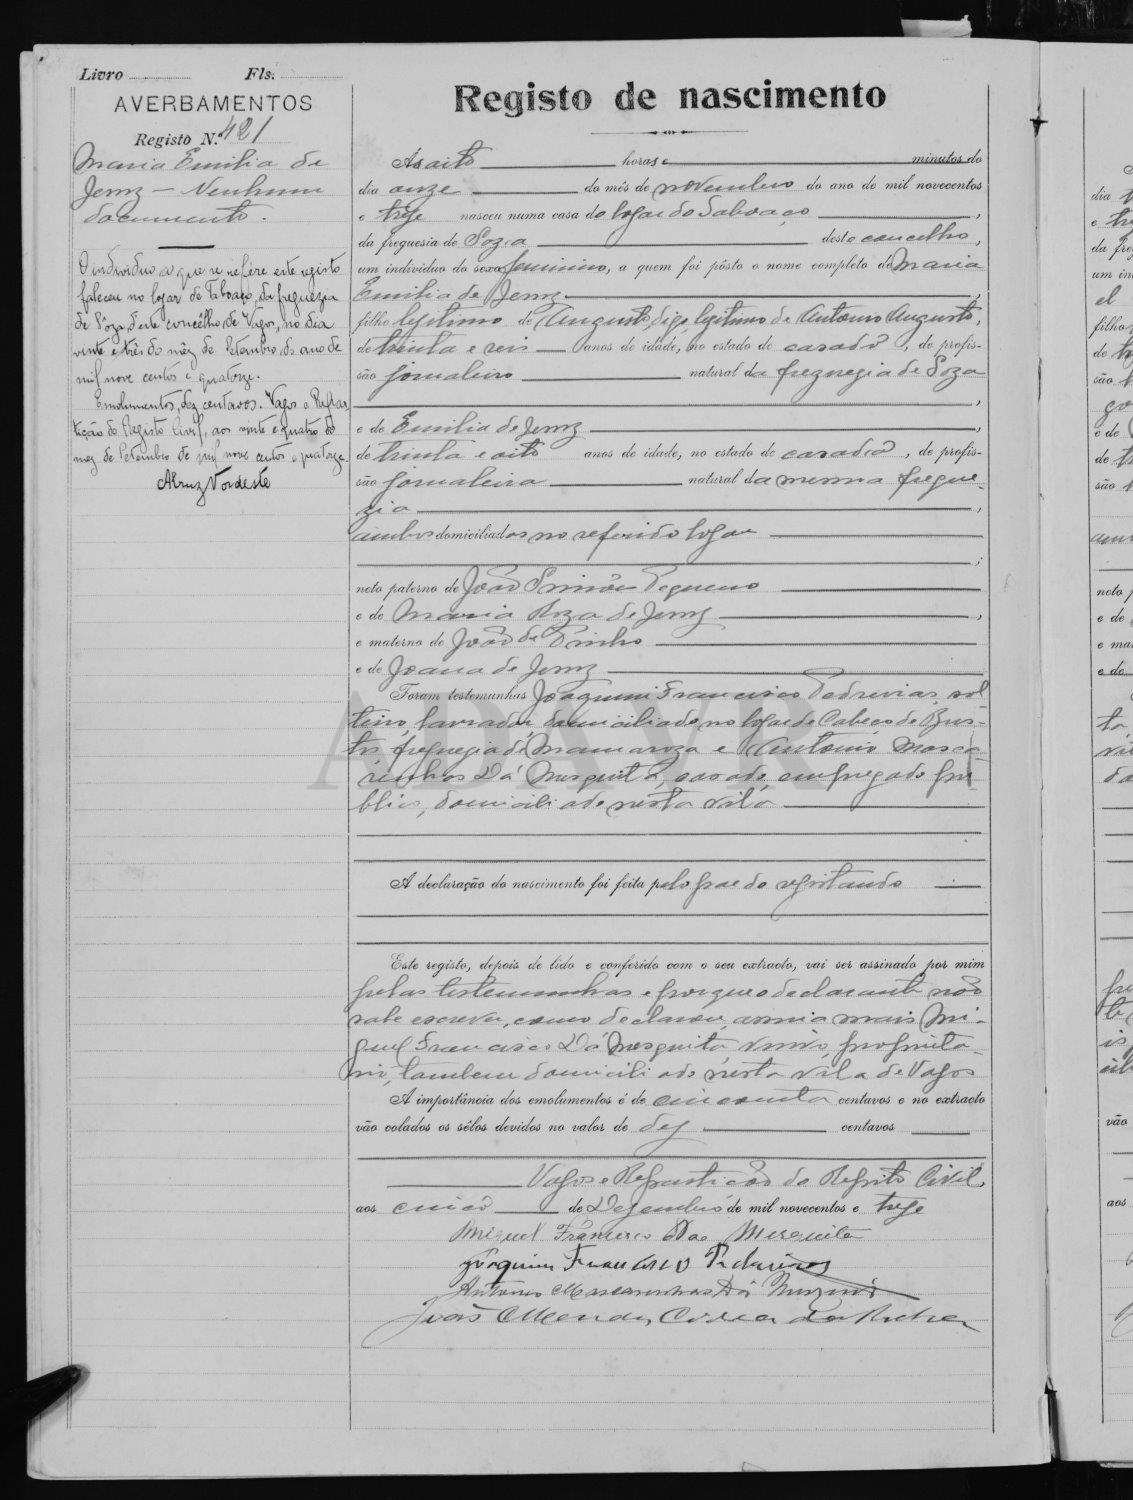 Livro Fls.
AVERBAMENTOS
Registo N. 421
Maria Emilia de
Jesus — Nenhum
documento.
O individuo a que se refére este registo
faleceu no logar de Taboaço, da freguezia
de Sôza, deste concêlho de Vagos, no dia
vinte e três do mêz de Setembro do ano de
mil nove centos e quatorze.
Emolumentos, dez centavos. Vagos e Repar-
tição do Registo Civil, aos vinte e quatro do
mez de Setembro de mil nove centos e quatorze.
Registo de nascimento
As oito horas e minutos do
dia onze do mês de novembro do ano de mil novecentos
e treze nasceu numa casa do logar do Taboaço,
da freguesia de Soza deste concelho,
um individuo do sexo feminino, a quem foi pôsto o nome completo de Maria
Emilia de Jesus,
filho legitimo de Augusto, digo legitimo de Antonio Augusto,
de trinta e seis anos de idade, no estado de casado, de profis-
são jornaleiro natural da freguezia de Soza
,
e de Emilia de Jesus,
de trinta e oito anos de idade, no estado de casada, de profis-
são jornaleira natural da mesma fregue-
zia,
ambos domiciliados no referido logar
;
neto paterno de João Simões Pequeno
e de Maria Roza de Jesus,
e materno de João de Pinho
e de Joana de Jesus
Foram testemunhas Joaquim Francisco Pedreiras, sol-
teiro, lavrador, domiciliado no logar de Cabeço de Bus-
tos, freguezia de Mamaroza e Antonio Masca-
renhas Dá Mesquita, casado, empregado pu-
blico, domiciliado nesta vila
A declaração do nascimento foi feita pelo pae do registando
Este registo, depois de lido e conferido com o seu extracto, vai ser assinado por mim
pelas testemunhas e porque o declarante não
sabe escrever, como declarou, assina mais Mi-
guel Francisco Dá Mesquita, viuvo, proprieta-
rio, tambem domiciliado nésta vila de Vagos
A importância dos emolumentos é de cincoenta centavos e no extracto
vão colados os sêlos devidos no valor de dez centavos
Vagos e Repartição do Registo Civil,
aos cinco de Dezembro de mil novecentos e treze
Miguel Francisco Dao Mesquita
Joaquim Francisco Pedreiras
Antonio Mascarenhas Dá Mesquita
João Mendes Correa da Rocha
ADAVR